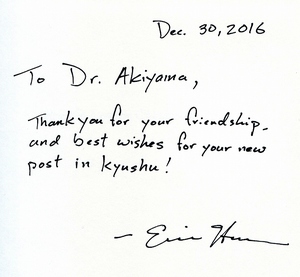 Dec. 30, 2016
To Dr. Akiyama,
Thank you for your friendship,
and best wishes for your new
post in Kyushu!
— Eric